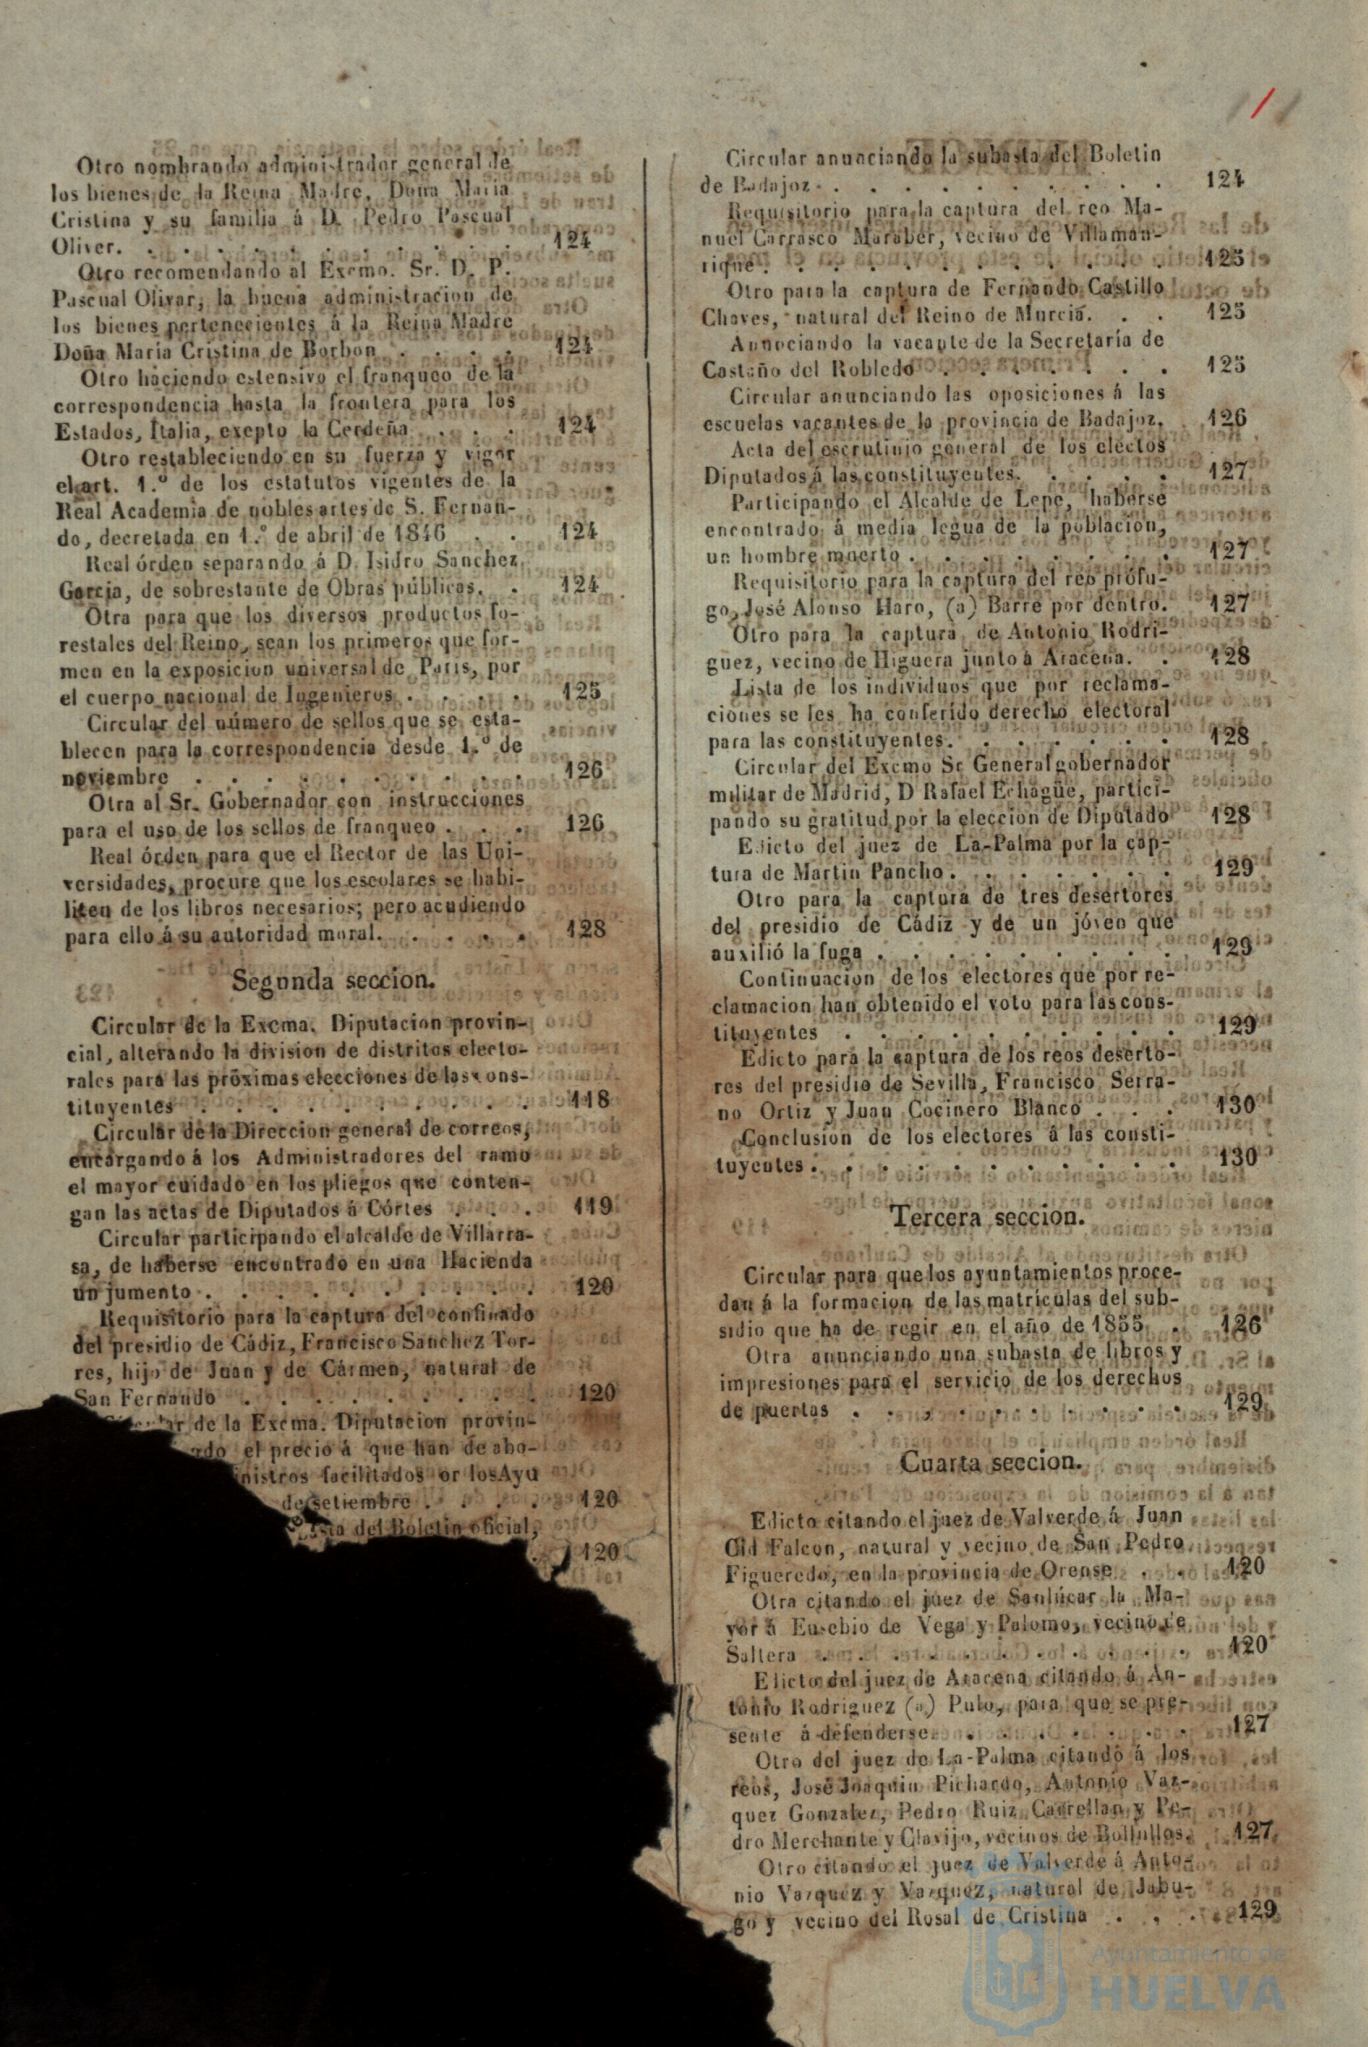 Otro nombrando administrador general de
los bienes de la Reina Madre, Doña Maria
Cristina y su familia á D. Pedro Pascual
Oliver. . . . . . . . . . . . 124
Otro recomendando al Excmo. Sr. D. P.
Pascual Olivar, la buena administracion de
los bienes pertenecientes á la Reina Madre
Doña María Cristina de Borbon . . . . . 124
Otro haciendo estensivo el franqueo de la
correspondencia hasta la frontera para los
Estados, Italia, exepto la Cerdeña . . . 124
Otro restableciendo en su fuerza y vigor
el art. 1.º de los estatutos vigentes de la
Real Academia de nobles artes de S. Fernan-
do, decretada en 1.º de abril de 1846 . . 124
Real órden separando á D. Isidro Sanchez
Garcia, de sobrestante de Obras públicas. . 124
Otra para que los diversos productos fo-
restales del Reino, sean los primeros que for-
men en la exposicion universal de Paris, por
el cuerpo nacional de Ingenieros . . . . 125
Circular del número de sellos que se esta-
blecen para la correspondencia desde 1.º de
noviembre . . . . . . . . . . 126
Otra al Sr. Gobernador con instrucciones
para el uso de los sellos de franqueo . . . 126
Real órden para que el Rector de las Uni-
versidades, procure que los escolares se habi-
liten de los libros necesarios; pero acudiendo
para ello á su autoridad moral. . . . . 128
Segunda seccion.
Circular de la Excma. Diputacion provin-
cial, alterando la division de distritos electo-
rales para las próximas elecciones de las cons-
tituyentes . . . . . . . . . . 118
Circular de la Direccion general de correos,
encargando á los Administradores del ramo
el mayor cuidado en los pliegos que conten-
gan las actas de Diputados á Córtes . . . 119
Circular participando el alcalde de Villarra-
sa, de haberse encontrado en una Hacienda
un jumento . . . . . . . . . . 120
Requisitorio para la captura del confinado
del presidio de Cádiz, Francisco Sanchez Tor-
res, hijo de Juan y de Cármen, natural de
San Fernando . . . . . . . . . 120
Circular de la Excma. Diputacion provin-
el precio á que han de abo-
nistros facilitados or los Ayu
de setiembre . . . . 120
del Boletin oficial,
. 120
Circular anunciando la subasta del Boletin
de Badajoz . . . . . . . . . . 124
Requisitorio para la captura del reo Ma-
nuel Carrasco Maraber, vecino de Villaman-
rique . . . . . . . . . . . . 125
Otro para la captura de Fernando Castillo
Chaves, natural del Reino de Murcia. . . 125
Anunciando la vacante de la Secretaría de
Castaño del Robledo . . . . . . . 125
Circular anunciando las oposiciones á las
escuelas vacantes de la provincia de Badajoz. 126
Acta del escrutinio general de los electos
Diputados á las constituyentes. . . . . 127
Participando el Alcalde de Lepe, haberse
encontrado á media legua de la poblacion,
un hombre muerto . . . . . . . . 127
Requisitorio para la captura del reo prófu-
go, José Alonso Haro, (a) Barre por dentro. 127
Otro para la captura de Antonio Rodri-
guez, vecino de Higuera junto á Aracena. . 128
Lista de los individuos que por reclama-
ciones se les ha conferido derecho electoral
para las constituyentes. . . . . . . 128
Circular del Excmo Sr General gobernador
militar de Madrid, D Rafael Echagüe, partici-
pando su gratitud por la eleccion de Diputado 128
Edicto del juez de La-Palma por la cap-
tura de Martin Pancho . . . . . . . 129
Otro para la captura de tres desertores
del presidio de Cádiz y de un jóven que
auxilió la fuga . . . . . . . . . 129
Continuacion de los electores que por re-
clamacion han obtenido el voto para las cons-
tituyentes . . . . . . . . . . 129
Edicto para la captura de los reos deserto-
res del presidio de Sevilla, Francisco Serra-
no Ortiz y Juan Cocinero Blanco . . . 130
Conclusion de los electores á las consti-
tuyentes . . . . . . . . . . . 130
Tercera seccion.
Circular para que los ayuntamientos proce-
dan á la formacion de las matrículas del sub-
sidio que ha de regir en el año de 1855 . 126
Otra anunciando una subasta de libros y
impresiones para el servicio de los derechos
de puertas . . . . . . . . . . 129
Cuarta seccion.
Edicto citando el juez de Valverde á Juan
Cid Falcon, natural y vecino de San Pedro
Figueredo, en la provincia de Orense . . . 120
Otra citando el juez de Sanlúcar la Ma-
yor á Eusebio de Vega y Palomo, vecino de
Saltera . . . . . . . . . . . 120
Edicto del juez de Aracena citando á An-
tonio Rodriguez (a) Pulo, para que se pre-
sente á defenderse. . . . . . . . . 127
Otro del juez de La-Palma citando á los
reos, José Joaquin Pichardo, Antonio Vaz-
quez Gonzalez, Pedro Ruiz Castellan y Pe-
dro Merchante y Clavijo, vecinos de Bollullos. 127
Otro citando el juez de Valverde á Anto-
nio Vazquez y Vazquez, natural de Jabu-
go y vecino del Rosal de Cristina . . . . 129
Ayuntamiento de
HUELVA